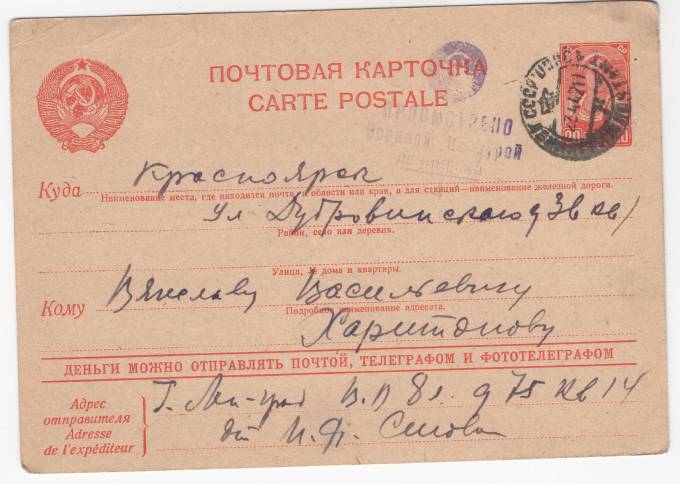 ПОЧТОВАЯ КАРТОЧКА
CARTE POSTALE
ПРОСМОТРЕНО
Военной
Куда Красноярск
Наименование места, где находится почта, и области или края, а для станций—наименование железной дороги.
Ул Дубровинского д 38 кв 1
Район, село или деревня.
Улица, № дома и квартиры.
Кому Вячеславу Васильевичу
Подробное наименование адресата.
Харитонову
ДЕНЬГИ МОЖНО ОТПРАВЛЯТЬ ПОЧТОЙ, ТЕЛЕГРАФОМ И ФОТОТЕЛЕГРАФОМ
Адрес
отправителя
Adresse
de l'expéditeur
Г. Лен-град В.О 8 л. д 75 кв 14